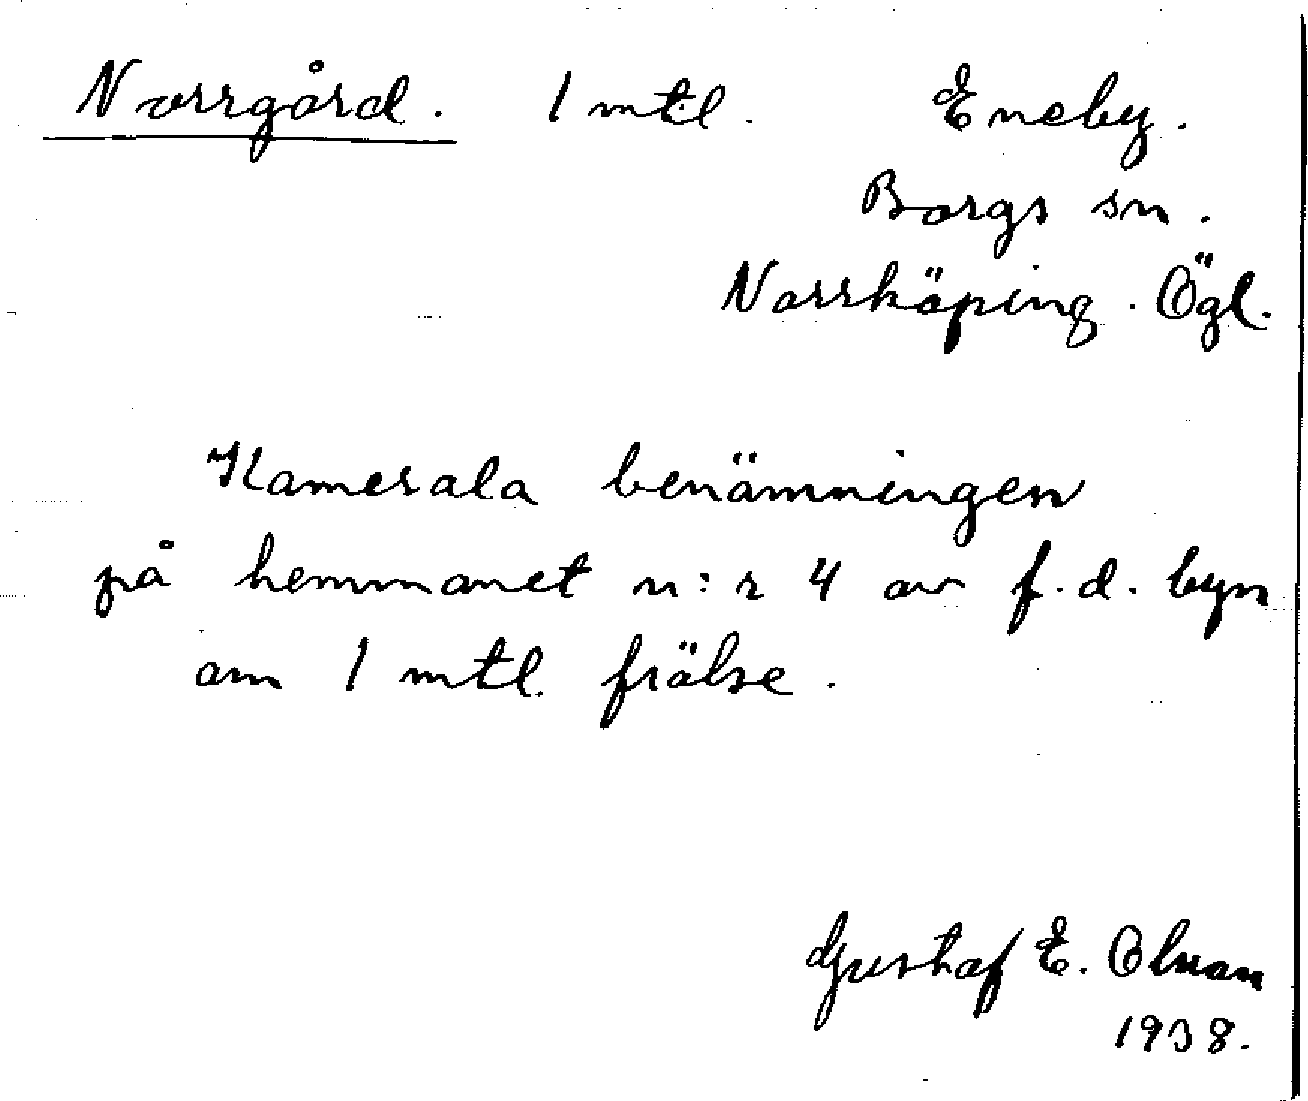 Norrgård. 1 mtl. Eneby.
Borgs sn.
Norrköping. Ögl.
Kamerala benämningen
på hemmanet n:r 4 av f.d. byn
om 1 mtl. frälse.
Gustaf E. Olson
1938.